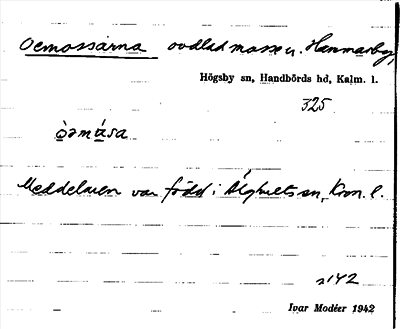 Oemossarna ouodlad mosse u. Hanmarby,
Högsby sn, Handbörds hd, Kalm. l.
325
òǝmɑ́sa
Meddelaren var född i Älghults sn, Kron. l.
142
Ivar Modéer 1942